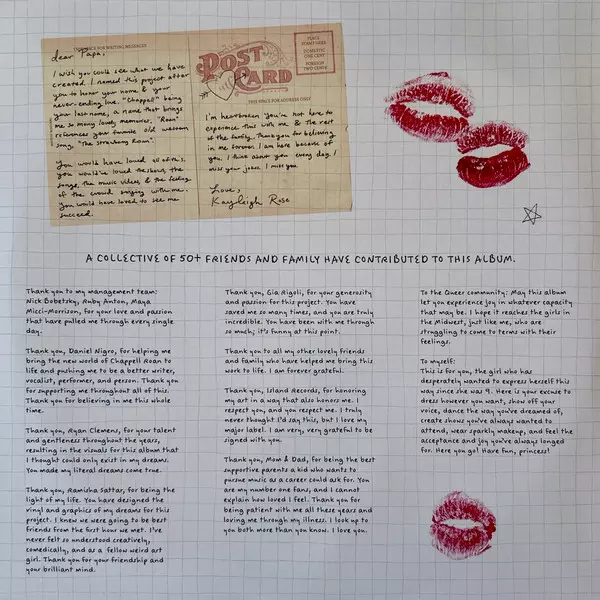 THIS SPACE FOR WRITING MESSAGES
POST CARD
PLACE
STAMP HERE
DOMESTIC
ONE CENT
FOREIGN
TWO CENTS
THIS SPACE FOR ADDRESS ONLY
dear Papa,
I wish you could see what we have
created. I named this project after
you to honor your name & your
never-ending love. "Chappell" being
your last name, a name that brings
me so many lovely memories. "Roan"
references your favorite old western
song, "The Strawberry Roan".
You would have loved all of this.
you would've loved the shows, the
songs, the music videos & the feeling
of the crowd singing with me.
You would have loved to see me
succeed.
I'm heartbroken you're not here to
experience this with me & the rest
of the family. Thank you for believing
in me forever. I am here because of
you. I think about you every day. I
miss your jokes. I miss you.
Love,
Kayleigh Rose
A COLLECTIVE OF 50+ FRIENDS AND FAMILY HAVE CONTRIBUTED TO THIS ALBUM.
Thank you to my management team:
Nick Bobetsky, Ruby Anton, Maya
Micci-Morrison, for your love and passion
that have pulled me through every single
day.
Thank you, Daniel Nigro, for helping me
bring the new world of Chappell Roan to
life and pushing me to be a better writer,
vocalist, performer, and person. Thank you
for supporting me throughout all of this.
Thank you for believing in me this whole
time.
Thank you, Ryan Clemens, for your talent
and gentleness throughout the years,
resulting in the visuals for this album that
I thought could only exist in my dreams.
You made my literal dreams come true.
Thank you, Ramisha Sattar, for being the
light of my life. You have designed the
vinyl and graphics of my dreams for this
project. I knew we were going to be best
friends from the first hour we met. I've
never felt so understood creatively,
comedically, and as a fellow weird art
girl. Thank you for your friendship and
your brilliant mind.
Thank you, Gia Rigoli, for your generosity
and passion for this project. You have
saved me so many times, and you are truly
incredible. You have been with me through
so much; it's funny at this point.
Thank you to all my other lovely friends
and family who have helped me bring this
work to life. I am forever grateful.
Thank you, Island Records, for honoring
my art in a way that also honors me. I
respect you, and you respect me. I truly
never thought I'd say this, but I love my
major label. I am very, very grateful to be
signed with you.
Thank you, Mom & Dad, for being the best
supportive parents a kid who wants to
pursue music as a career could ask for. You
are my number one fans, and I cannot
explain how loved I feel. Thank you for
being patient with me all these years and
loving me through my illness. I look up to
you both more than you know. I love you.
To the Queer community: May this album
let you experience joy in whatever capacity
that may be. I hope it reaches the girls in
the Midwest, just like me, who are
struggling to come to terms with their
feelings.
To myself:
This is for you, the girl who has
desperately wanted to express herself this
way since she was 9. Here is your excuse to
dress however you want, show off your
voice, dance the way you've dreamed of,
create shows you've always wanted to
attend, wear sparkly makeup, and feel the
acceptance and joy you've always longed
for. Here you go! Have fun, princess!